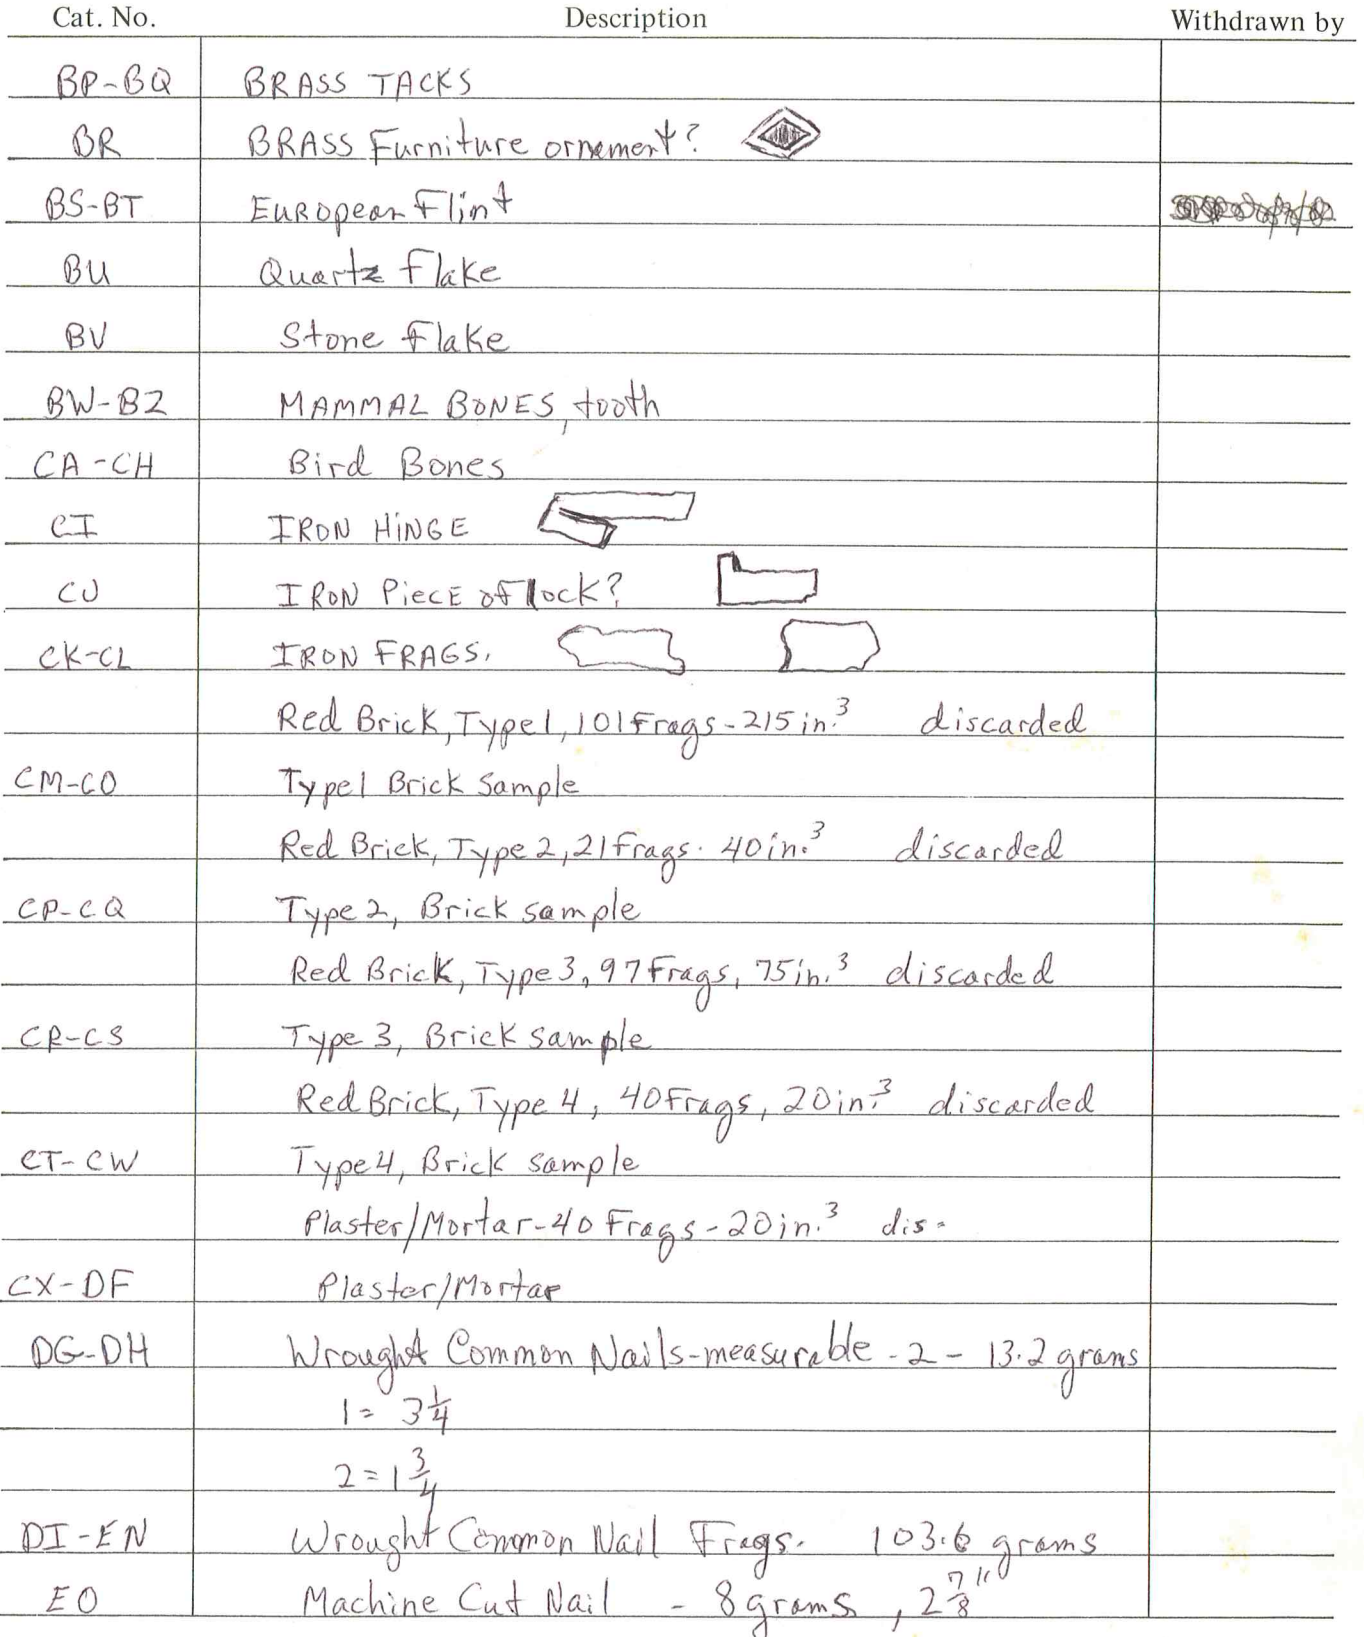 Cat. No. Description Withdrawn by
BP-BQ BRASS TACKS
BR BRASS Furniture ornement?
BS-BT European Flint
BU Quartz Flake
BV Stone Flake
BW-BZ MAMMAL BONES, tooth
CA-CH Bird Bones
CI IRON HINGE
CJ IRON PiECE of lock?
CK-CL IRON FRAGS.
Red Brick, Type 1, 101 Frags - 215 in.³ discarded
CM-CO Type 1 Brick Sample
Red Brick, Type 2, 21 Frags. 40 in.³ discarded
CP-CQ Type 2, Brick sample
Red Brick, Type 3, 97 Frags, 75 in.³ discarded
CR-CS Type 3, Brick sample
Red Brick, Type 4, 40 Frags, 20 in.³ discarded
CT-CW Type 4, Brick sample
Plaster/Mortar - 40 Frags - 20 in.³ dis.
CX-DF Plaster/Mortar
DG-DH Wrought Common Nails-measurable - 2 - 13.2 grams
1 = 3 1/4
2 = 1 3/4
DI-EN Wrought Common Nail Frags. 103.6 grams
EO Machine Cut Nail - 8 grams, 2 7/8"